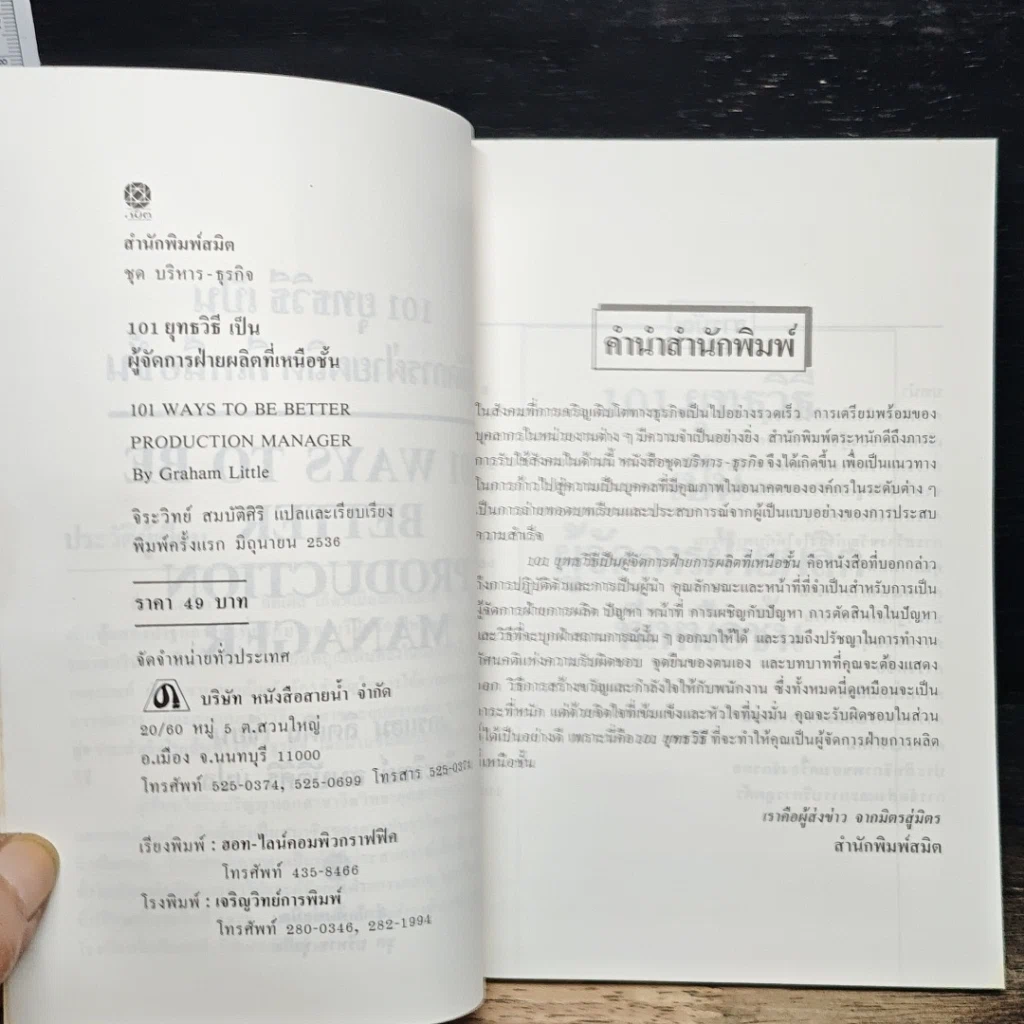 สมิต
สำนักพิมพ์สมิต
ชุด บริหาร-ธุรกิจ
101 ยุทธวิธี เป็น
ผู้จัดการฝ่ายผลิตที่เหนือชั้น
101 WAYS TO BE BETTER
PRODUCTION MANAGER
By Graham Little
จิระวิทย์ สมบัติศิริ แปลและเรียบเรียง
พิมพ์ครั้งแรก มิถุนายน 2536
ราคา 49 บาท
จัดจำหน่ายทั่วประเทศ
บริษัท หนังสือสายน้ำ จำกัด
20/60 หมู่ 5 ต.สวนใหญ่
อ.เมือง จ.นนทบุรี 11000
โทรศัพท์ 525-0374, 525-0699 โทรสาร 525-0374
เรียงพิมพ์ : ฮอท-ไลน์คอมพิวกราฟฟิค
โทรศัพท์ 435-8466
โรงพิมพ์ : เจริญวิทย์การพิมพ์
โทรศัพท์ 280-0346, 282-1994
คำนำสำนักพิมพ์
ในสังคมที่การเจริญเติบโตทางธุรกิจเป็นไปอย่างรวดเร็ว การเตรียมพร้อมของ
บุคลากรในหน่วยงานต่าง ๆ มีความจำเป็นอย่างยิ่ง สำนักพิมพ์ตระหนักดีถึงภาระ
การรับใช้สังคมในด้านนี้ หนังสือชุดบริหาร-ธุรกิจ จึงได้เกิดขึ้น เพื่อเป็นแนวทาง
ในการก้าวไปสู่ความเป็นบุคคลที่มีคุณภาพในอนาคตขององค์กรในระดับต่าง ๆ
เป็นการถ่ายทอดบทเรียนและประสบการณ์จากผู้เป็นแบบอย่างของการประสบ
ความสำเร็จ
101 ยุทธวิธีเป็นผู้จัดการฝ่ายการผลิตที่เหนือชั้น คือหนังสือที่บอกกล่าว
ถึงการปฏิบัติตัวและการเป็นผู้นำ คุณลักษณะและหน้าที่ที่จำเป็นสำหรับการเป็น
ผู้จัดการฝ่ายการผลิต ปัญหา หน้าที่ การเผชิญกับปัญหา การตัดสินใจในปัญหา
และวิธีที่จะบุกฝ่าสถานการณ์นั้น ๆ ออกมาให้ได้ และรวมถึงปรัชญาในการทำงาน
ทัศนคติแห่งความรับผิดชอบ จุดยืนของตนเอง และบทบาทที่คุณจะต้องแสดง
ออก วิธีการสร้างขวัญและกำลังใจให้กับพนักงาน ซึ่งทั้งหมดนี้ดูเหมือนจะเป็น
ภาระที่หนัก แต่ด้วยจิตใจที่เข้มแข็งและหัวใจที่มุ่งมั่น คุณจะรับผิดชอบในส่วน
นี้ได้เป็นอย่างดี เพราะนี่คือ 101 ยุทธวิธี ที่จะทำให้คุณเป็นผู้จัดการฝ่ายการผลิต
ที่เหนือชั้น
เราคือผู้ส่งข่าว จากมิตรสู่มิตร
สำนักพิมพ์สมิต